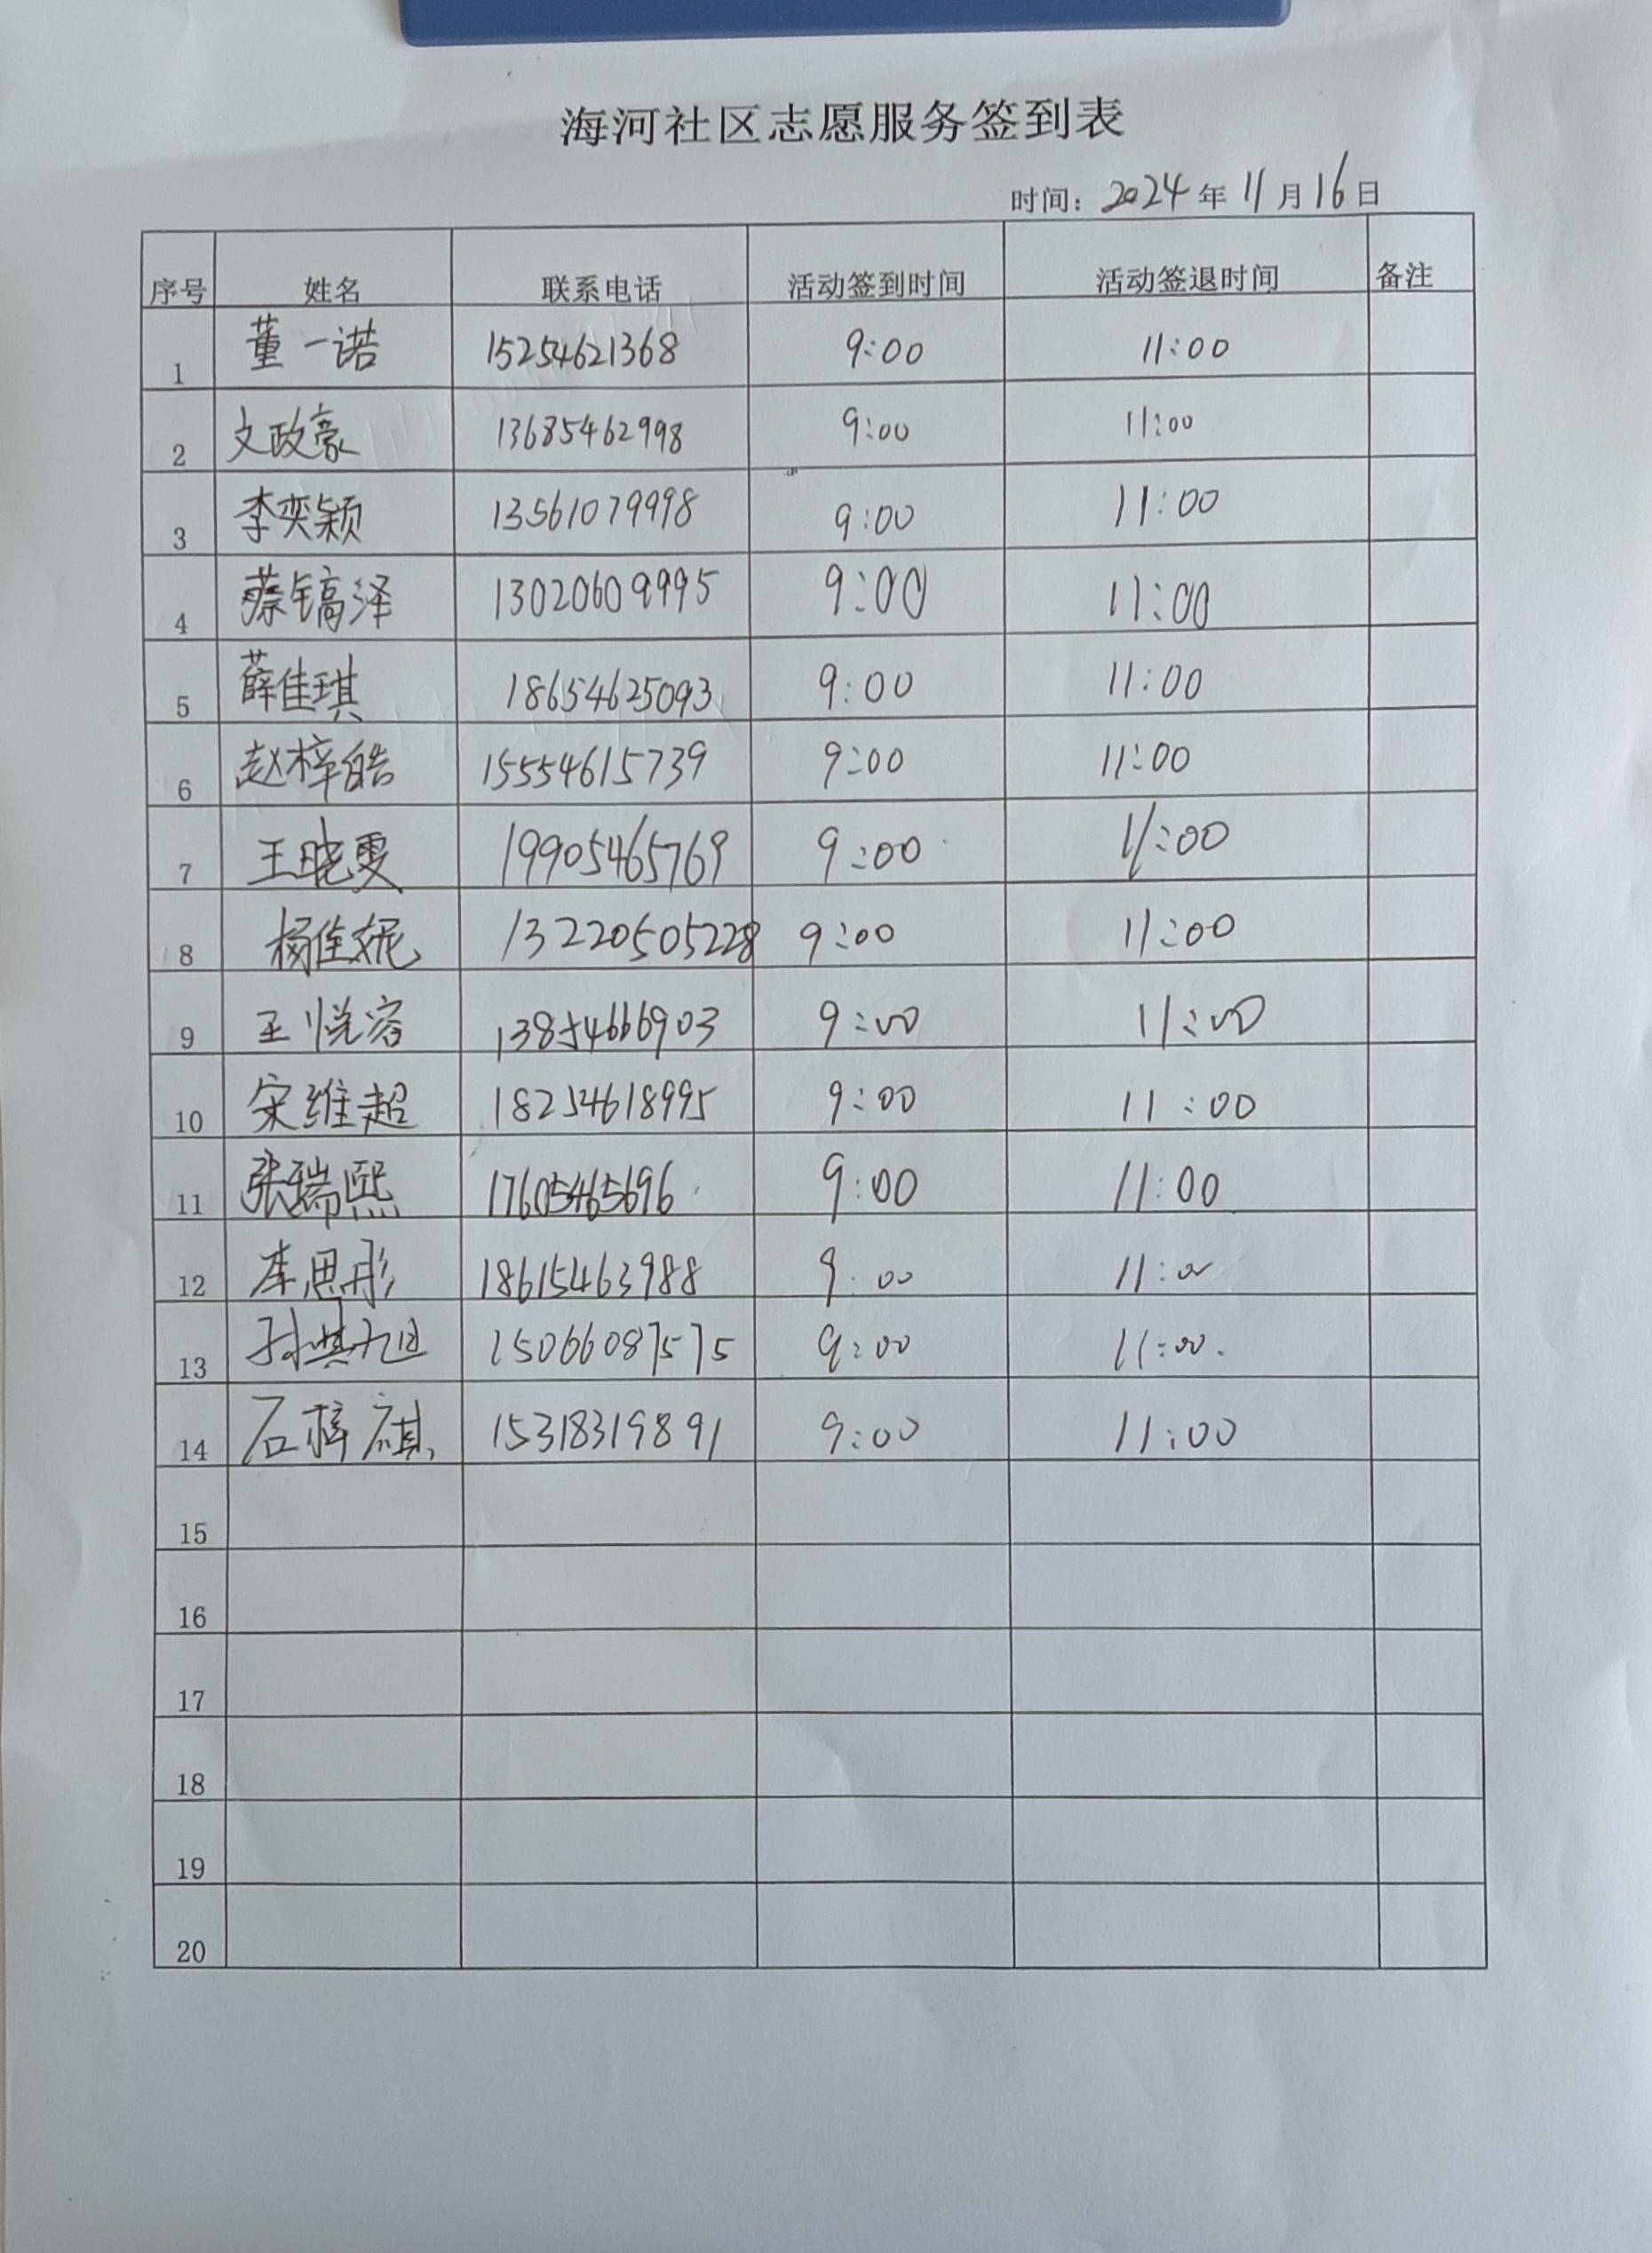 海河社区志愿服务签到表
时间：2024年11月16日
序号 姓名 联系电话 活动签到时间 活动签退时间 备注
1 董一诺 15254621368 9:00 11:00
2 文政豪 13685462998 9:00 11:00
3 李奕颖 13561079998 9:00 11:00
4 蔡镐泽 13020609995 9:00 11:00
5 薛佳琪 18654625093 9:00 11:00
6 赵梓皓 15554615739 9:00 11:00
7 王晓雯 19905465769 9:00 11:00
8 杨佳妮 13220505228 9:00 11:00
9 王悦容 13854666903 9:00 11:00
10 宋维超 18254618995 9:00 11:00
11 张瑞熙 17605465696 9:00 11:00
12 李思彤 18615463988 9:00 11:00
13 15066087575 9:00 11:00
14 石梓祺 15318319891 9:00 11:00
15
16
17
18
19
20